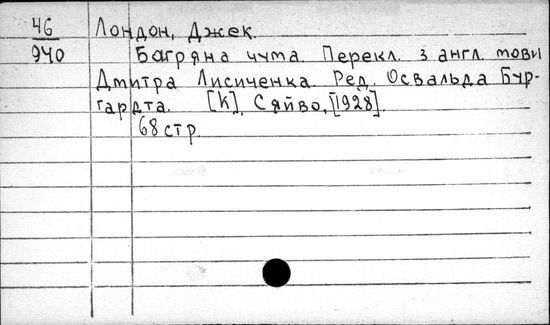 46 Лондон, Джек.
940 Багряна чума. Перекл. з англ. мови
Дмитра Лисиченка. Ред. Освальда Бур-
гардта. [К], Сяйво, [1928].
68 стр.